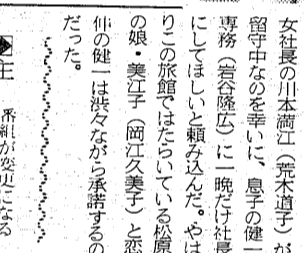 女社長の川本満江（荒木道子）が
留守中なのを幸いに、息子の健一
専務（岩谷隆広）に一晩だけ社長
にしてほしいと頼み込んだ。やは
りこの旅館ではたらいている松原
の娘・美江子（岡江久美子）と恋
仲の健一は渋々ながら承諾するの
だった。
番組が変更になる